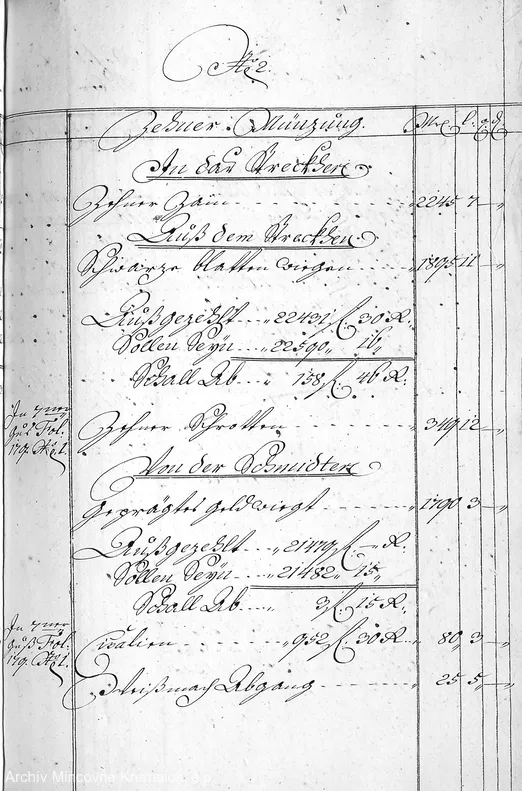 No 2.
Zehner Münzung. Mr l: q d.
An das Streckhen
Zehner Zain - - - 2245 7 — "
Auß dem Streckhen
Schwarze blatten wiegen - - - 1895 11 — "
Außgezehlt - - - " 22431 f: 30 K:
Sollen Seyn - - - " 22590 " 16 "
Schall Ab - - " 158 f: 46 K:
In 7ner
Guß Fol.
179. No 1.
Zehner Schrotten - - - 349 12 — "
Von der Schmidten
Geprägtes geld wiegt - - - 1790 3 — "
Außgezehlt - - - " 21479 f — K:
Sollen Seyn - - " 21482 " 15 "
Schall Ab - - " 3 f: 15 K:
In 7ner
Guß Fol.
179. No 1.
Cisalien - - - " 952 f: 30 K - - 80 3 — "
Weißmach Abgang - - - 25 5 — "
Archiv Mincovne Kremnica š.p.